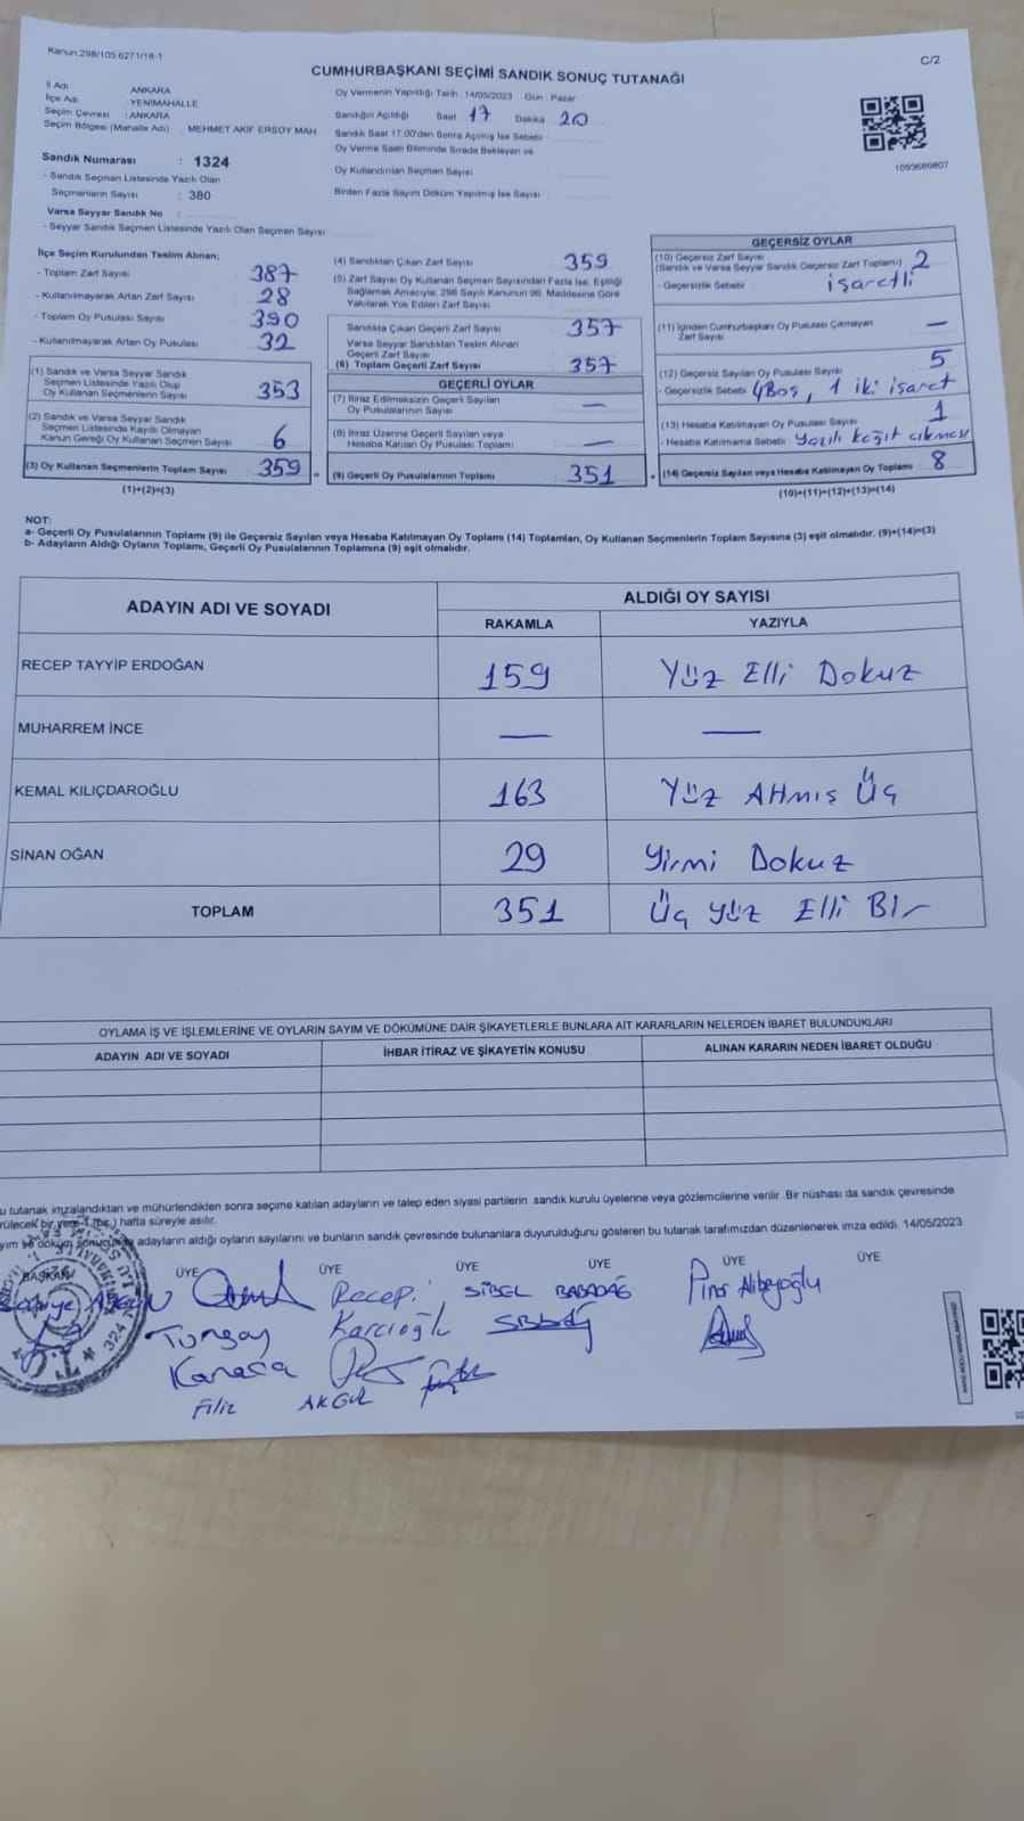 Kanun:298/105 6271/18-1
C/2
CUMHURBAŞKANI SEÇİMİ SANDIK SONUÇ TUTANAĞI
İl Adı : ANKARA
İlçe Adı : YENİMAHALLE
Seçim Çevresi : ANKARA
Seçim Bölgesi (Mahalle Adı) : MEHMET AKİF ERSOY MAH
Sandık Numarası : 1324
- Sandık Seçmen Listesinde Yazılı Olan
Seçmenlerin Sayısı : 380
Varsa Seyyar Sandık No :
- Seyyar Sandık Seçmen Listesinde Yazılı Olan Seçmen Sayısı
Oy Vermenin Yapıldığı Tarih : 14/05/2023 Gün : Pazar
Sandığın Açıldığı Saat 17 Dakika 20
Sandık Saat 17:00'den Sonra Açılmış İse Sebebi
Oy Verme Saati Bitiminde Sırada Bekleyen ve
Oy Kullandırılan Seçmen Sayısı
Birden Fazla Sayım Döküm Yapılmış İse Sayısı
İlçe Seçim Kurulundan Teslim Alınan;
- Toplam Zarf Sayısı 387
- Kullanılmayarak Artan Zarf Sayısı 28
- Toplam Oy Pusulası Sayısı 390
- Kullanılmayarak Artan Oy Pusulası 32
(1) Sandık ve Varsa Seyyar Sandık
Seçmen Listesinde Yazılı Olup
Oy Kullanan Seçmenlerin Sayısı 353
(2) Sandık ve Varsa Seyyar Sandık
Seçmen Listesinde Kayıtlı Olmayan
Kanun Gereği Oy Kullanan Seçmen Sayısı 6
(3) Oy Kullanan Seçmenlerin Toplam Sayısı 359
(1)+(2)=(3)
(4) Sandıktan Çıkan Zarf Sayısı 359
(5) Zarf Sayısı Oy Kullanan Seçmen Sayısından Fazla İse, Eşitliği
Sağlamak Amacıyla, 298 Sayılı Kanunun 98. Maddesine Göre
Yakılarak Yok Edilen Zarf Sayısı
Sandıkta Çıkan Geçerli Zarf Sayısı 357
Varsa Seyyar Sandıktan Teslim Alınan
Geçerli Zarf Sayısı
(6) Toplam Geçerli Zarf Sayısı 357
GEÇERLİ OYLAR
(7) İtiraz Edilmeksizin Geçerli Sayılan
Oy Pusulalarının Sayısı —
(8) İtiraz Üzerine Geçerli Sayılan veya
Hesaba Katılan Oy Pusulası Toplamı —
(9) Geçerli Oy Pusulalarının Toplamı 351
GEÇERSİZ OYLAR
(10) Geçersiz Zarf Sayısı
(Sandık ve Varsa Seyyar Sandık Geçersiz Zarf Toplamı) 2
- Geçersizlik Sebebi işaretli
(11) İçinden Cumhurbaşkanı Oy Pusulası Çıkmayan
Zarf Sayısı —
(12) Geçersiz Sayılan Oy Pusulası Sayısı 5
- Geçersizlik Sebebi 4 Boş, 1 iki işaret
(13) Hesaba Katılmayan Oy Pusulası Sayısı 1
- Hesaba Katılmama Sebebi Yazılı kağıt çıkması
(14) Geçersiz Sayılan veya Hesaba Katılmayan Oy Toplamı 8
(10)+(11)+(12)+(13)=(14)
NOT:
a- Geçerli Oy Pusulalarının Toplamı (9) ile Geçersiz Sayılan veya Hesaba Katılmayan Oy Toplamı (14) Toplamları, Oy Kullanan Seçmenlerin Toplam Sayısına (3) eşit olmalıdır. (9)+(14)=(3)
b- Adayların Aldığı Oyların Toplamı, Geçerli Oy Pusulalarının Toplamına (9) eşit olmalıdır.
ADAYIN ADI VE SOYADI ALDIĞI OY SAYISI
RAKAMLA YAZIYLA
RECEP TAYYİP ERDOĞAN 159 Yüz Elli Dokuz
MUHARREM İNCE — —
KEMAL KILIÇDAROĞLU 163 Yüz Atmış Üç
SİNAN OĞAN 29 Yirmi Dokuz
TOPLAM 351 Üç Yüz Elli Bir
OYLAMA İŞ VE İŞLEMLERİNE VE OYLARIN SAYIM VE DÖKÜMÜNE DAİR ŞİKAYETLERLE BUNLARA AİT KARARLARIN NELERDEN İBARET BULUNDUKLARI
ADAYIN ADI VE SOYADI İHBAR İTİRAZ VE ŞİKAYETİN KONUSU ALINAN KARARIN NEDEN İBARET OLDUĞU
u tutanak imzalandıktan ve mühürlendikten sonra seçime katılan adayların ve talep eden siyasi partilerin sandık kurulu üyelerine veya gözlemcilerine verilir. Bir nüshası da sandık çevresinde
rülecek bir yere 1 (bir) hafta süreyle asılır.
yım ve döküm sonucunda adayların aldığı oyların sayılarını ve bunların sandık çevresinde bulunanlara duyurulduğunu gösteren bu tutanak tarafımızdan düzenlenerek imza edildi. 14/05/2023
BAŞKAN ÜYE ÜYE ÜYE ÜYE ÜYE ÜYE
Recep SİBEL BABADAĞ Pınar Alibeyoğlu
Tungay Karcıoğlu
Karaca
Filiz AKGÜL